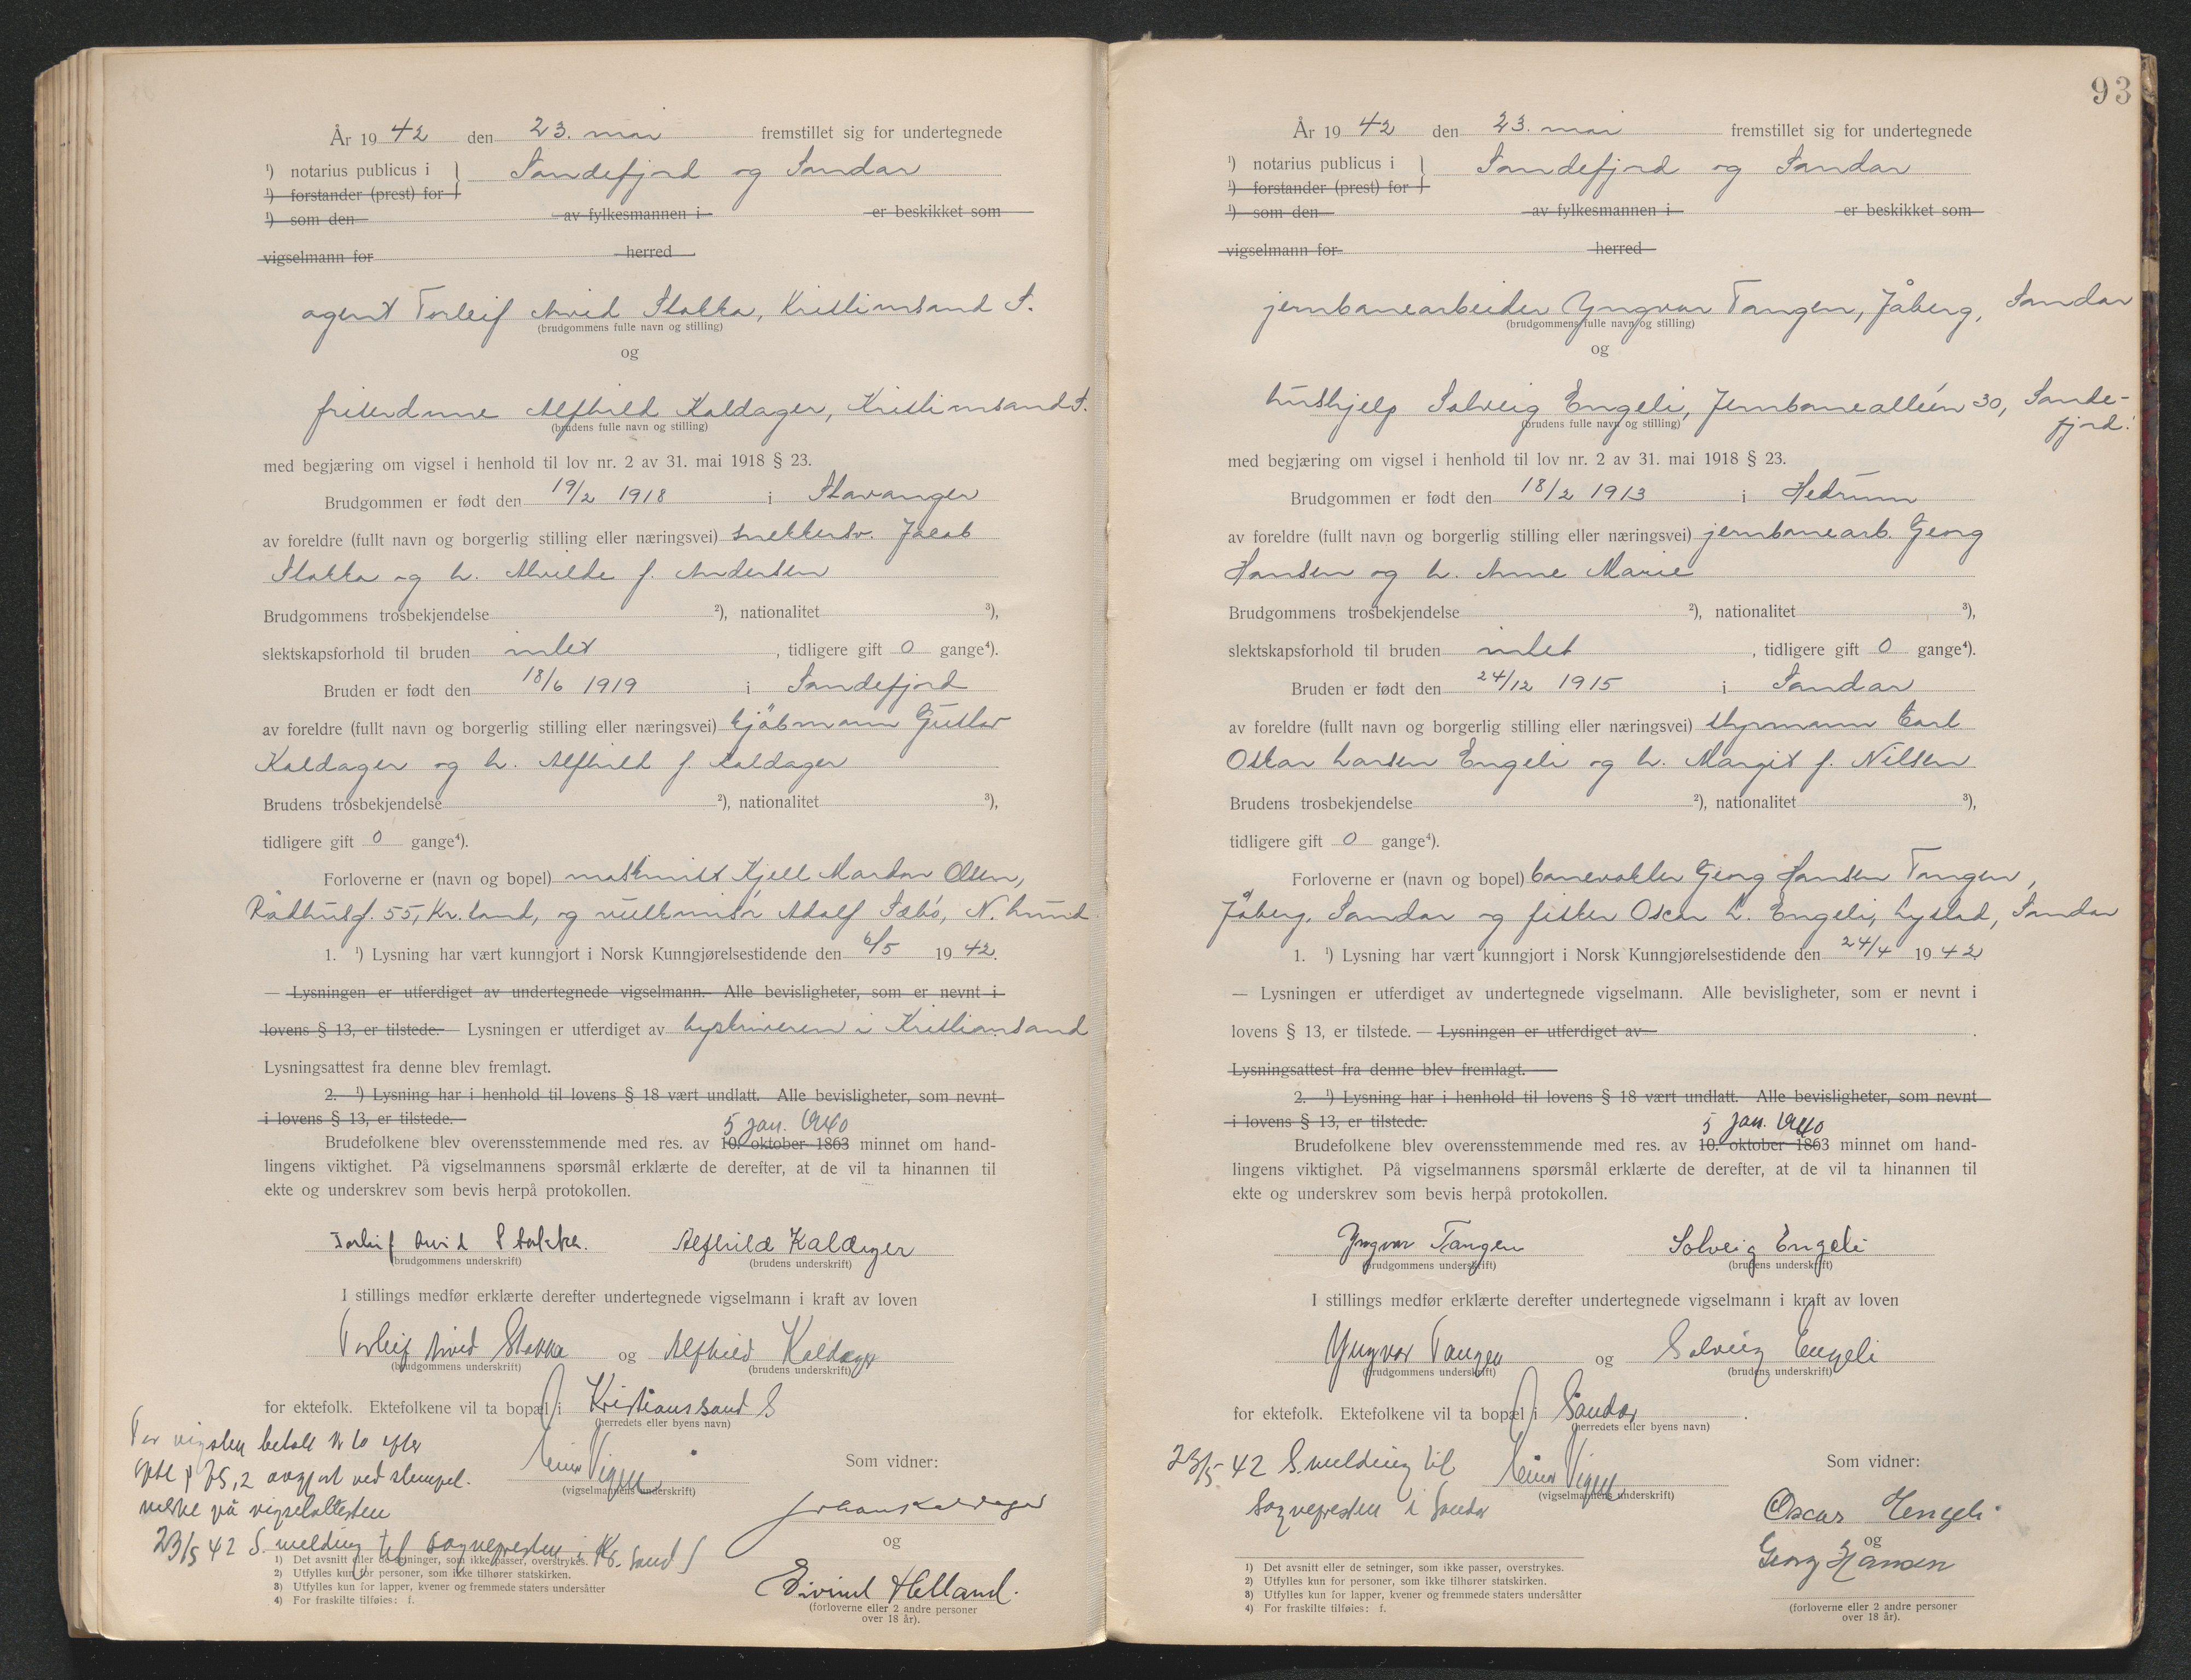 År 19 42 den 23. mai fremstillet sig for undertegnede
¹) notarius publicus i } Sandefjord og Sandar
¹) forstander (prest) for
¹) som den av fylkesmannen i er beskikket som
vigselmann for herred
agent Torleif Arvid Stokka, Kristiansand S.
(brudgommens fulle navn og stilling)
og
friserdame Alfhild Kaldager, Kristiansand S.
(brudens fulle navn og stilling)
med begjæring om vigsel i henhold til lov nr. 2 av 31. mai 1918 § 23.
Brudgommen er født den 19/2 1918 i Stavanger
av foreldre (fullt navn og borgerlig stilling eller næringsvei) snekkersv. Jacob
Stokka og h. Alvilde f. Andersen
Brudgommens trosbekjendelse ²), nationalitet ³),
slektskapsforhold til bruden intet , tidligere gift 0 gange⁴).
Bruden er født den 18/6 1919 i Sandefjord
av foreldre (fullt navn og borgerlig stilling eller næringsvei) kjøbmann Gustav
Kaldager og h. Alfhild f. Kaldager
Brudens trosbekjendelse ²), nationalitet ³),
tidligere gift 0 gange⁴).
Forloverne er (navn og bopel) maskinist Kjell Mardon Olsen,
Rådhusg. 55, Kr.sand, og Adolf Sæbö, N.
1. ¹) Lysning har vært kunngjort i Norsk Kunngjørelsestidende den 6/5 19 42.
— Lysningen er utferdiget av undertegnede vigselmann. Alle bevisligheter, som er nevnt i
lovens § 13, er tilstede. — Lysningen er utferdiget av byskriveren i Kristiansand
Lysningsattest fra denne blev fremlagt.
2. ¹) Lysning har i henhold til lovens § 18 vært undlatt. Alle bevisligheter, som nevnt
i lovens § 13, er tilstede.
5 jan. 1940
Brudefolkene blev overensstemmende med res. av 10. oktober 1863 minnet om hand-
lingens viktighet. På vigselmannens spørsmål erklærte de derefter, at de vil ta hinannen til
ekte og underskrev som bevis herpå protokollen.
Torleif Arvid Stokka. Alfhild Kaldager
(brudgommens underskrift) (brudens underskrift)
I stillings medfør erklærte derefter undertegnede vigselmann i kraft av loven
Torleif Arvid Stokka og Alfhild Kaldager
(brudgommens underskrift) (brudens underskrift)
for ektefolk. Ektefolkene vil ta bopæl i Kristianssand S
(herredets eller byens navn)
For vigslen betalt kr 10 efter
§ 75,2 avgjort ved stempel.
merke på vigselattesten
Einar Vigeland
(vigselmannens underskrift)
Som vidner:
Johan Kaldager
og
Eivind Helland.
(forloverne eller 2 andre personer
over 18 år).
23/5 42 S. melding til sogneprsten i Kr. sand S
1) Det avsnitt eller de setninger, som ikke passer, overstrykes.
2) Utfylles kun for personer, som ikke tilhører statskirken.
3) Utfylles kun for lapper, kvener og fremmede staters undersåtter
4) For fraskilte tilføies: f.
93
År 19 42 den 23. mai fremstillet sig for undertegnede
¹) notarius publicus i } Sandefjord og Sandar
¹) forstander (prest) for
¹) som den av fylkesmannen i er beskikket som
vigselmann for herred
jernbanearbeider Yngvar Tangen, Jåberg, Sandar
(brudgommens fulle navn og stilling)
og
hushjelp Solveig Engeli, Jernbanealléen 30, Sande-
fjord.
(brudens fulle navn og stilling)
med begjæring om vigsel i henhold til lov nr. 2 av 31. mai 1918 § 23.
Brudgommen er født den 18/2 1913 i Hedrum
av foreldre (fullt navn og borgerlig stilling eller næringsvei) jernbanearb. Georg
Hansen og h. Anne Marie
Brudgommens trosbekjendelse ²), nationalitet ³),
slektskapsforhold til bruden intet , tidligere gift 0 gange⁴).
Bruden er født den 24/12 1915 i Sandar
av foreldre (fullt navn og borgerlig stilling eller næringsvei) styrmann Carl
Oskar Larsen Engeli og h. Margit f. Nilsen
Brudens trosbekjendelse ²), nationalitet ³),
tidligere gift 0 gange⁴).
Forloverne er (navn og bopel) banevokter Georg Hansen Tangen,
Jåberg, Sandar og fisker Oscar L. Engeli, Lystad, Sandar
1. ¹) Lysning har vært kunngjort i Norsk Kunngjørelsestidende den 24/4 19 42
— Lysningen er utferdiget av undertegnede vigselmann. Alle bevisligheter, som er nevnt i
lovens § 13, er tilstede. — Lysningen er utferdiget av .
Lysningsattest fra denne blev fremlagt.
2. ¹) Lysning har i henhold til lovens § 18 vært undlatt. Alle bevisligheter, som nevnt
i lovens § 13, er tilstede.
5 jan. 1940
Brudefolkene blev overensstemmende med res. av 10. oktober 1863 minnet om hand-
lingens viktighet. På vigselmannens spørsmål erklærte de derefter, at de vil ta hinannen til
ekte og underskrev som bevis herpå protokollen.
Yngvar Tangen Solveig Engeli
(brudgommens underskrift) (brudens underskrift)
I stillings medfør erklærte derefter undertegnede vigselmann i kraft av loven
Yngvar Tangen og Solveig Engeli
(brudgommens underskrift) (brudens underskrift)
for ektefolk. Ektefolkene vil ta bopæl i Sandar .
(herredets eller byens navn)
23/5 42 S. melding til
Sogneprsten i Sandar
Einar Vigeland
(vigselmannens underskrift)
Som vidner:
Oscar Engeli
og
Georg Hansen
(forloverne eller 2 andre personer
over 18 år).
1) Det avsnitt eller de setninger, som ikke passer, overstrykes.
2) Utfylles kun for personer, som ikke tilhører statskirken.
3) Utfylles kun for lapper, kvener og fremmede staters undersåtter
4) For fraskilte tilføies: f.